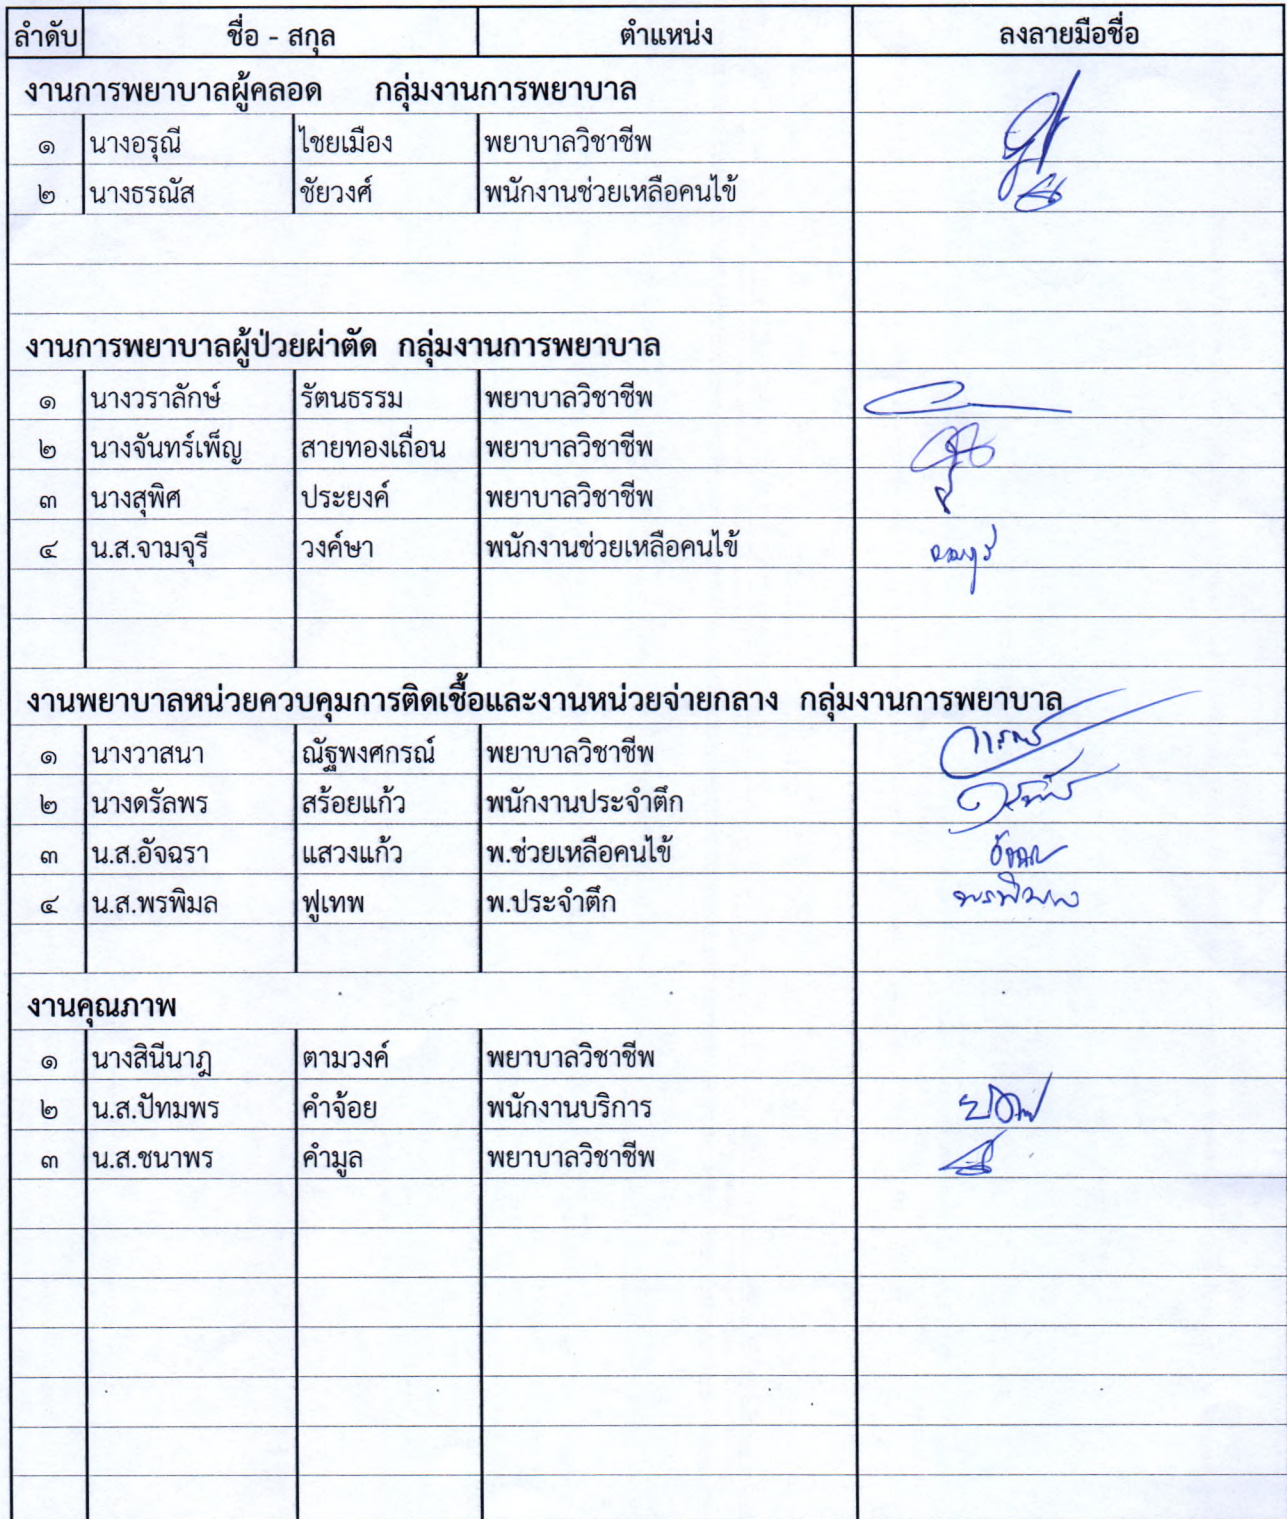 ลำดับ ชื่อ - สกุล ตำแหน่ง ลงลายมือชื่อ
งานการพยาบาลผู้คลอด กลุ่มงานการพยาบาล
๑ นางอรุณี ไชยเมือง พยาบาลวิชาชีพ
๒ นางธรณัส ชัยวงศ์ พนักงานช่วยเหลือคนไข้
งานการพยาบาลผู้ป่วยผ่าตัด กลุ่มงานการพยาบาล
๑ นางวราลักษ์ รัตนธรรม พยาบาลวิชาชีพ
๒ นางจันทร์เพ็ญ สายทองเถื่อน พยาบาลวิชาชีพ
๓ นางสุพิศ ประยงค์ พยาบาลวิชาชีพ
๔ น.ส.จามจุรี วงค์ษา พนักงานช่วยเหลือคนไข้ จามจุรี
งานพยาบาลหน่วยควบคุมการติดเชื้อและงานหน่วยจ่ายกลาง กลุ่มงานการพยาบาล
๑ นางวาสนา ณัฐพงศกรณ์ พยาบาลวิชาชีพ
๒ นางดรัลพร สร้อยแก้ว พนักงานประจำตึก
๓ น.ส.อัจฉรา แสวงแก้ว พ.ช่วยเหลือคนไข้ อัจฉรา
๔ น.ส.พรพิมล ฟูเทพ พ.ประจำตึก พรพิมล
งานคุณภาพ
๑ นางสินีนาฏ ตามวงค์ พยาบาลวิชาชีพ
๒ น.ส.ปัทมพร คำจ้อย พนักงานบริการ
๓ น.ส.ชนาพร คำมูล พยาบาลวิชาชีพ